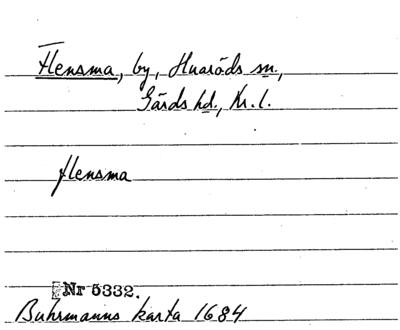 Flensma, by, Huaröds sn.,
Gärds hd., Kr. l.
flensma
Nr 5332.
Buhrmanns karta 1684